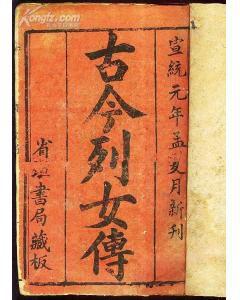 宣統元年孟夏月新刊
古今列女傳
書局藏板